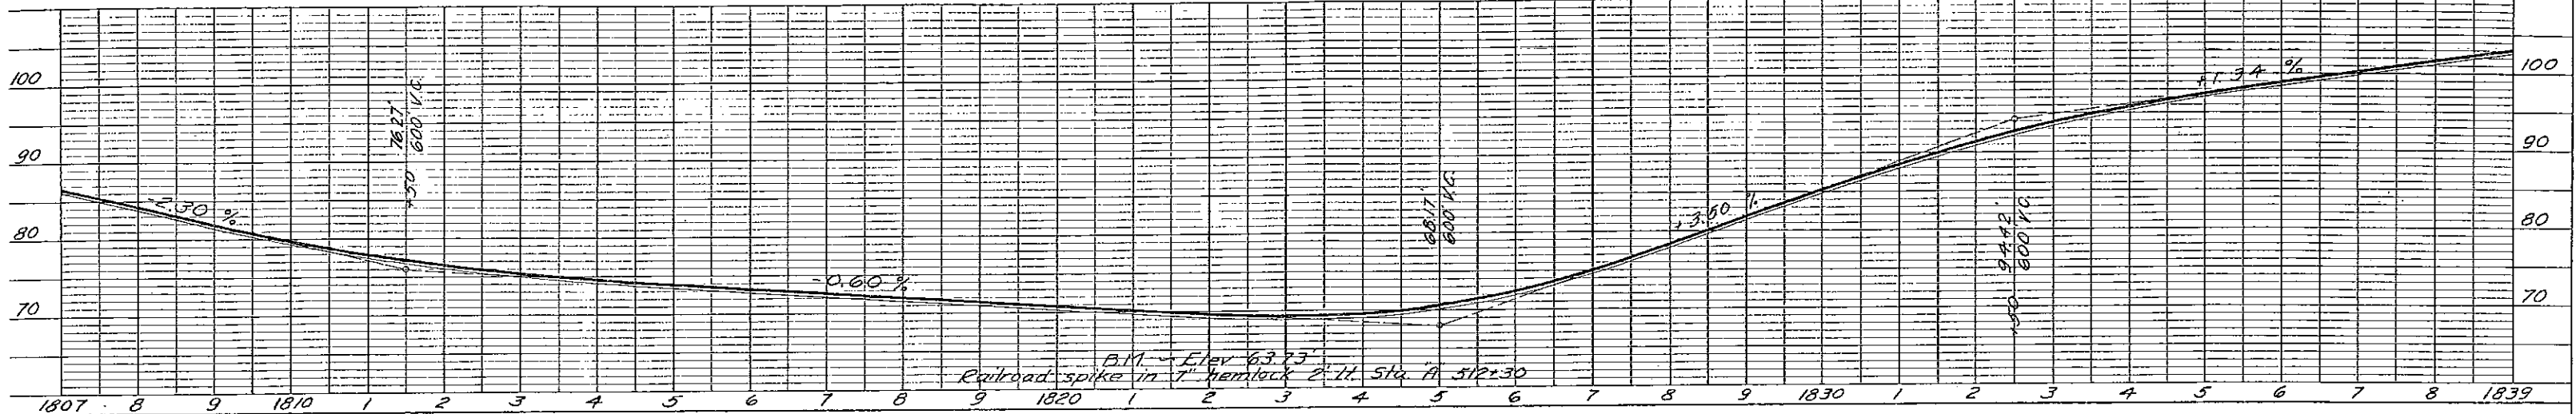 100
90
80
70
-2.30 %
+50 76.27'
600' V.C.
-0.60 %
68.17'
600' V.C.
+3.50 %
+50 94.42'
600' V.C.
+1.34 %
100
90
80
70
B.M. - Elev 63.73'
Railroad spike in hemlock 2' Lt. Sta. "A" 512+30
1807 8 9 1810 1 2 3 4 5 6 7 8 9 1820 1 2 3 4 5 6 7 8 9 1830 1 2 3 4 5 6 7 8 1839